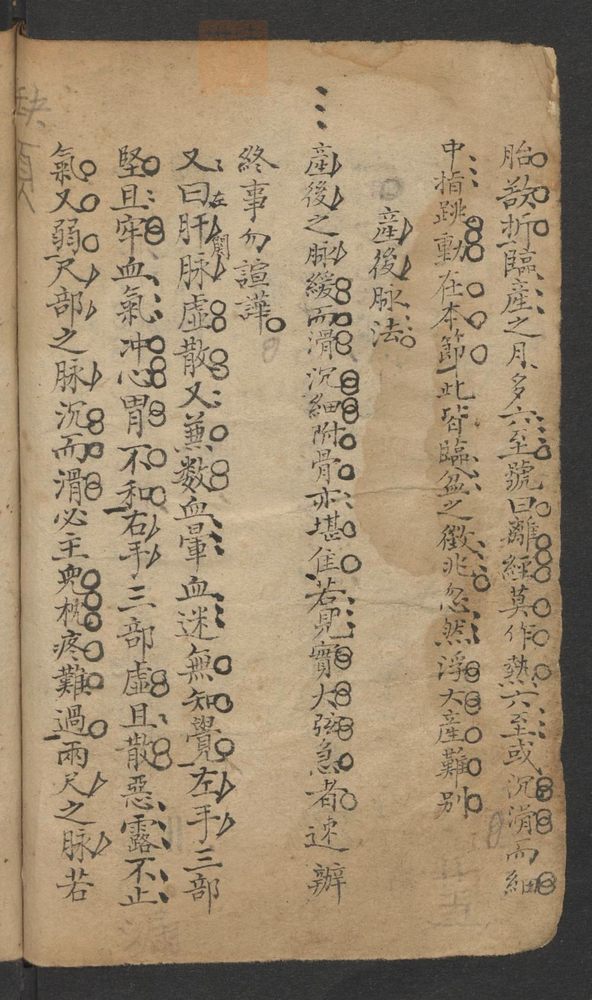 胎欲折臨產之月多六至號曰離經莫作熱六至或沉滑而細
中指跳動在本節此皆臨盆之徵兆忽然浮大產難別
產後脉法
產後之脉緩而滑沉細附骨亦堪佳若見實大弦急者速辦
終事勿諠譁
又曰肝脉虛散又兼數血暈血迷無知覺左手三部
左關
堅且牢血氣冲心胃不和右手三部虛且散惡露不止
氣又弱尺部之脉沉而滑必主兒枕疼難過兩尺之脉若